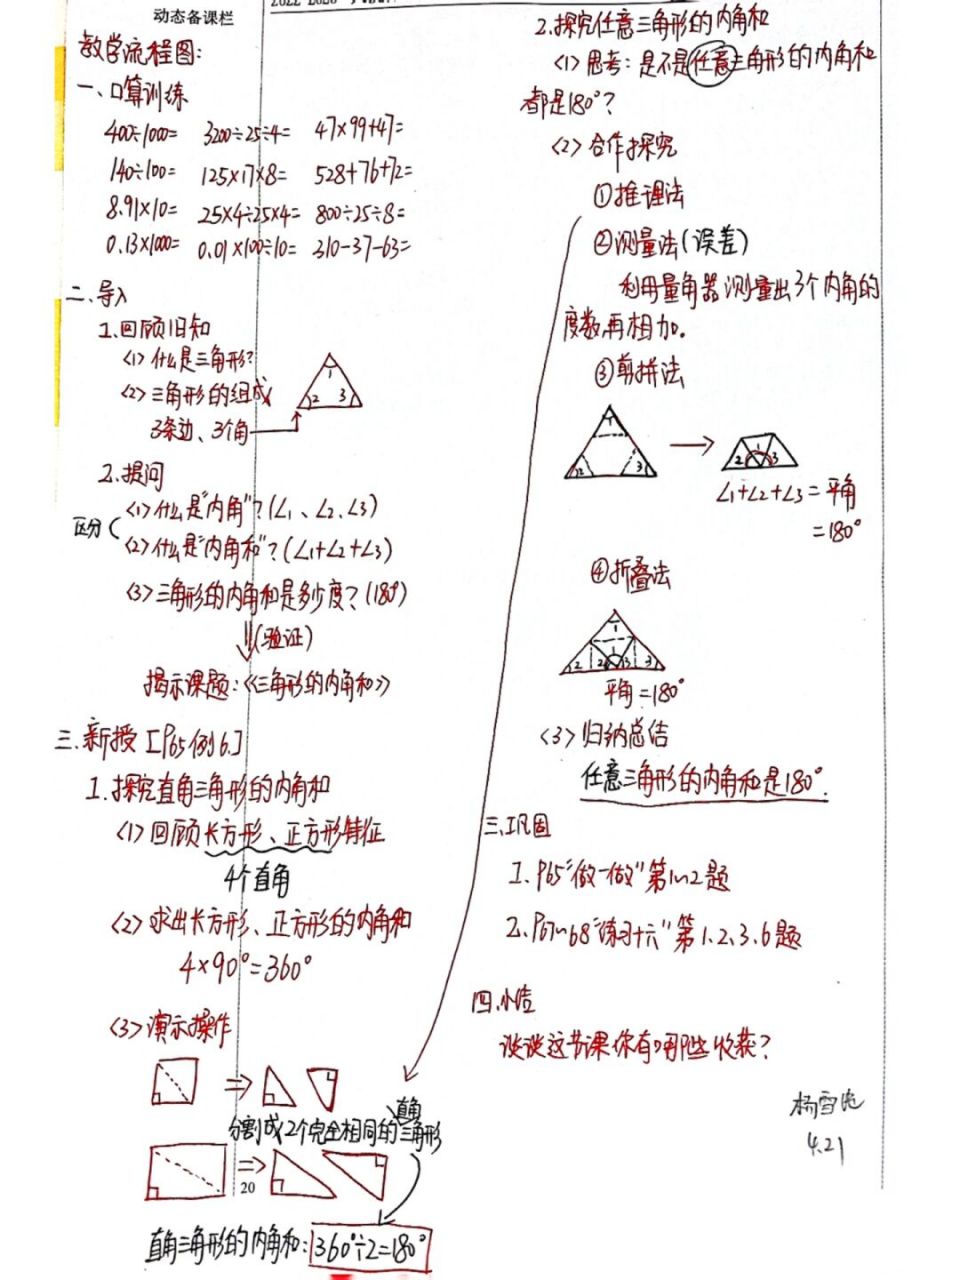 动态备课栏
教学流程图:
一、口算训练
400÷1000= 3200÷25÷4= 47×99+47=
140÷100= 125×17×8= 528+76+72=
8.91×10= 25×4÷25×4= 800÷25÷8=
0.13×1000= 0.01×100÷10= 310-37-63=
二、导入
1.回顾旧知
<1>什么是三角形?
<2>三角形的组成
3条边、3个角
1
2 3
2.提问
<1>什么是"内角"?(∠1、∠2、∠3)
区分
<2>什么是"内角和"?(∠1+∠2+∠3)
<3>三角形的内角和是多少度?(180°)
(验证)
揭示课题:《三角形的内角和》
三.新授[P65例6.]
1.探究直角三角形的内角和
<1>回顾长方形、正方形特征
4个直角
<2>求出长方形、正方形的内角和
4×90°=360°
<3>演示操作
直角
分割成2个完全相同的三角形
20
直角三角形的内角和:360°÷2=180°
2.探究任意三角形的内角和
<1>思考:是不是任意三角形的内角和
都是180°?
<2>合作探究
①推理法
②测量法(误差)
利用量角器测量出3个内角的
度数再相加。
③剪拼法
1
2 3
2 1 3
∠1+∠2+∠3=平角
=180°
④折叠法
1
2 2 1 3 3
平角=180°
<3>归纳总结
任意三角形的内角和是180°.
三.巩固
1.P65"做一做"第1~2题
2.P67~68"练习十六"第1.2.3.6题
四.小结
谈谈这节课你有哪些收获?
杨雪
4.21